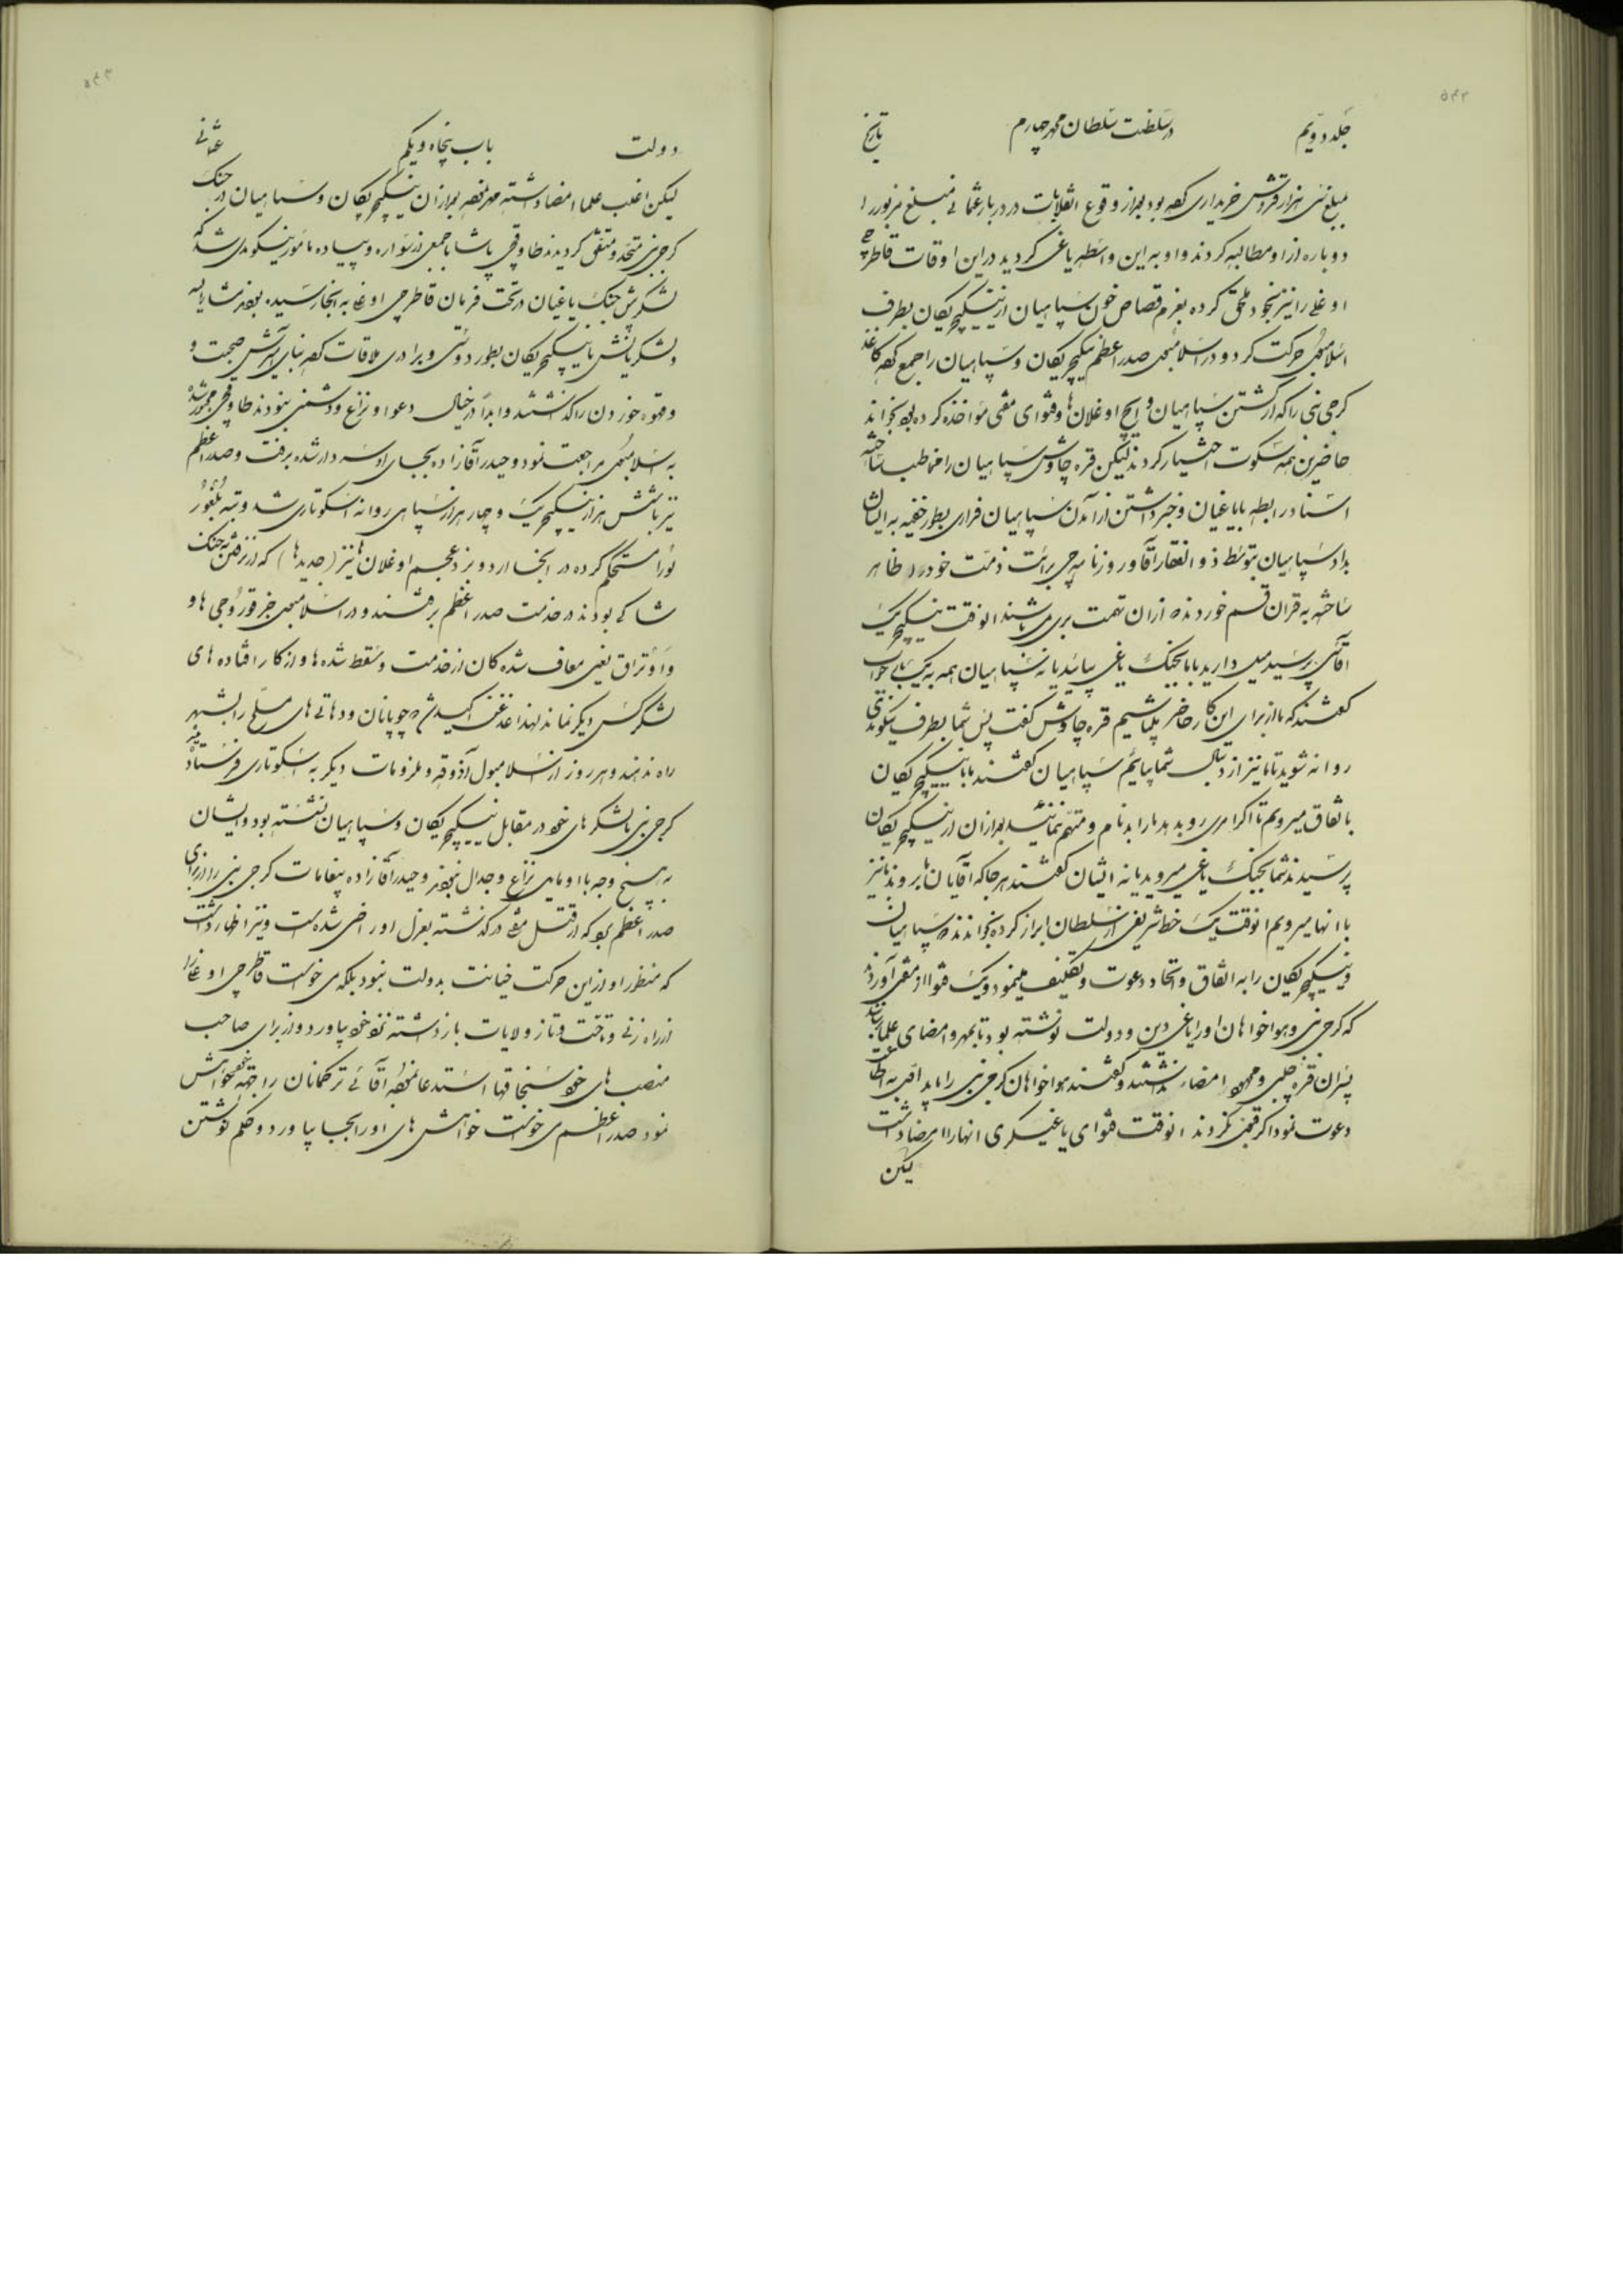 جلد دویم در سلطنت سلطان محمد چهارم تاریخ
مبلغ سی هزار قروش خریداری کرده بود بعد از وقوع انقلابات در دربار عثمانی مبلغ مزبور را
دوباره از او مطالبه کردند و او به این واسطه یاغی گردید در این اوقات قاطرچی
اوغلی را نیز بخود ملحق کرده بعزم قصاص خون سپاهیان از ینیکچریکان بطرف
اسلامبول حرکت کرد و در اسلامبول صدر اعظم ینیکچریکان و سپاهیان را جمع کرده کاغذ
کرجی نبی را که از کشتن سپاهیان و ایچ اوغلان‌ها و فتوای مفتی مؤاخذه کرده بود بخواند
حاضرین همه سکوت اختیار کردند لیکن قره چاوش سپاهیان را مخاطب ساخته
اسناد رابطه با یاغیان و خبر داشتن از آمدن سپاهیان فراری بطور خفیه به ایشان
بداد سپاهیان بتوسط ذوالفقار آقا و روزنامه‌چی برائت ذمت خود را ظاهر
ساخته به قران قسم خوردند که ازان تهمت بری می باشند انوقت ینیکچریک
اقاسی پرسید میل دارید با ما بجنک یاغی بیائید یا نه سپاهیان همه به یکبار جواب
گفتند که ما از برای این کار حاضر باشیم قره چاوش گفت پس شما بطرف نیکومدی
روانه شوید تا ما نیز از دنبال شما بیائیم سپاهیان گفتند ما با ینیکچریکان
باتفاق میرویم تا اکر امری رو بدهد ما را بدنام و متهم ننمائید بعد ازان از ینیکچریکان
پرسیدند شما بجنک یاغی میروید یا نه ایشان گفتند هر جا که آقایان ما بروند ما نیز
با انها میرویم انوقت یک خط شریفی از سلطان ابراز کرده بخواندند که سپاهیان
و ینیکچریکان را به اتفاق و اتحاد دعوت و تکلیف مینمود و یک فتوا از مفتی آوردند
که کرجی نبی و هواخواهان او را یاغی دین و دولت نوشته بود تا بمهر و امضای علما رسانند
پسران قره چلبی و محمود امضا نداشتند و گفتند هواخواهان کرجی نبی را باید اقبه اطاعت
دعوت نمود اکر قبول نکردند انوقت فتوای یاغیکری انها را امضا داشت
لیکن
دولت باب پنجاه و یکم عثمانی
لیکن اغلب علما امضا داشته مهر نمودند بعد ازان ینیکچریکان و سپاهیان در جنک
کرجی نبی متحد و متفق گردیدند طاوقچی پاشا با جمعی از سواره و پیاده مأمور نیکومدی شد که
لشکر پیش جنک یاغیان در تحت فرمان قاطرچی اوغلی به انجا رسیده بودند مشارالیه
و لشکریانش با ینیکچریکان بطور دوستی و برادری ملاقات کرده بنای صحبت و
و قهوه خوردن را گذاشتند و ابدا در خیال دعوا و نزاع و دشمنی نبودند طاوقچی مجبور شده
به اسلامبول مراجعت نمود و حیدر آقازاده بجای او سردار شده برفت و صدر اعظم
نیز با شش هزار ینیکچریک و چهار هزار سپاهی روانه اسکوتاری شد و تپه بلغورلو
را مستحکم کرده در انجا اردو بزد عجم اوغلان‌ها نیز (جدیدها) که از نرفتن به جنک
شاکی بودند در خدمت صدر اعظم برفتند و در اسلامبول جز قوروجی ها و
و اوتراق یعنی معاف شده کان از خدمت و سقط شده ها و از کار افتاده های
لشکر کسی دیکر نماند لهذا غدغن اکید شد که چوپانان و دهاتی های مسلح را بشهر
راه ندهند و هر روز از اسلامبول آذوقه و ملزومات دیکر به اسکوتاری فرستاده میشد
کرجی نبی با لشکر های خود در مقابل ینیکچریکان و سپاهیان نشسته بود و ایشان
به هیچ وجه با او مایل نزاع و جدال نبودند و حیدر آقازاده پیغامات کرجی نبی را از برای
صدر اعظم بود که از قتل مفتی درگذشته بعزل او راضی شده است و نیز اظهار داشت
که منظور او از این حرکت خیانت بدولت نبود بلکه می خواست قاطرچی اوغلی را
از راه زنی و تاخت و تاز ولایات باز داشته نزد خود بیاورد و از برای صاحب
منصب های خود سنجاقها استدعا نمود و آقائی ترکمانان را جهة خود خواهش
نمود صدر اعظم می خواست خواهش های او را بجا بیاورد و حکم نوشتن